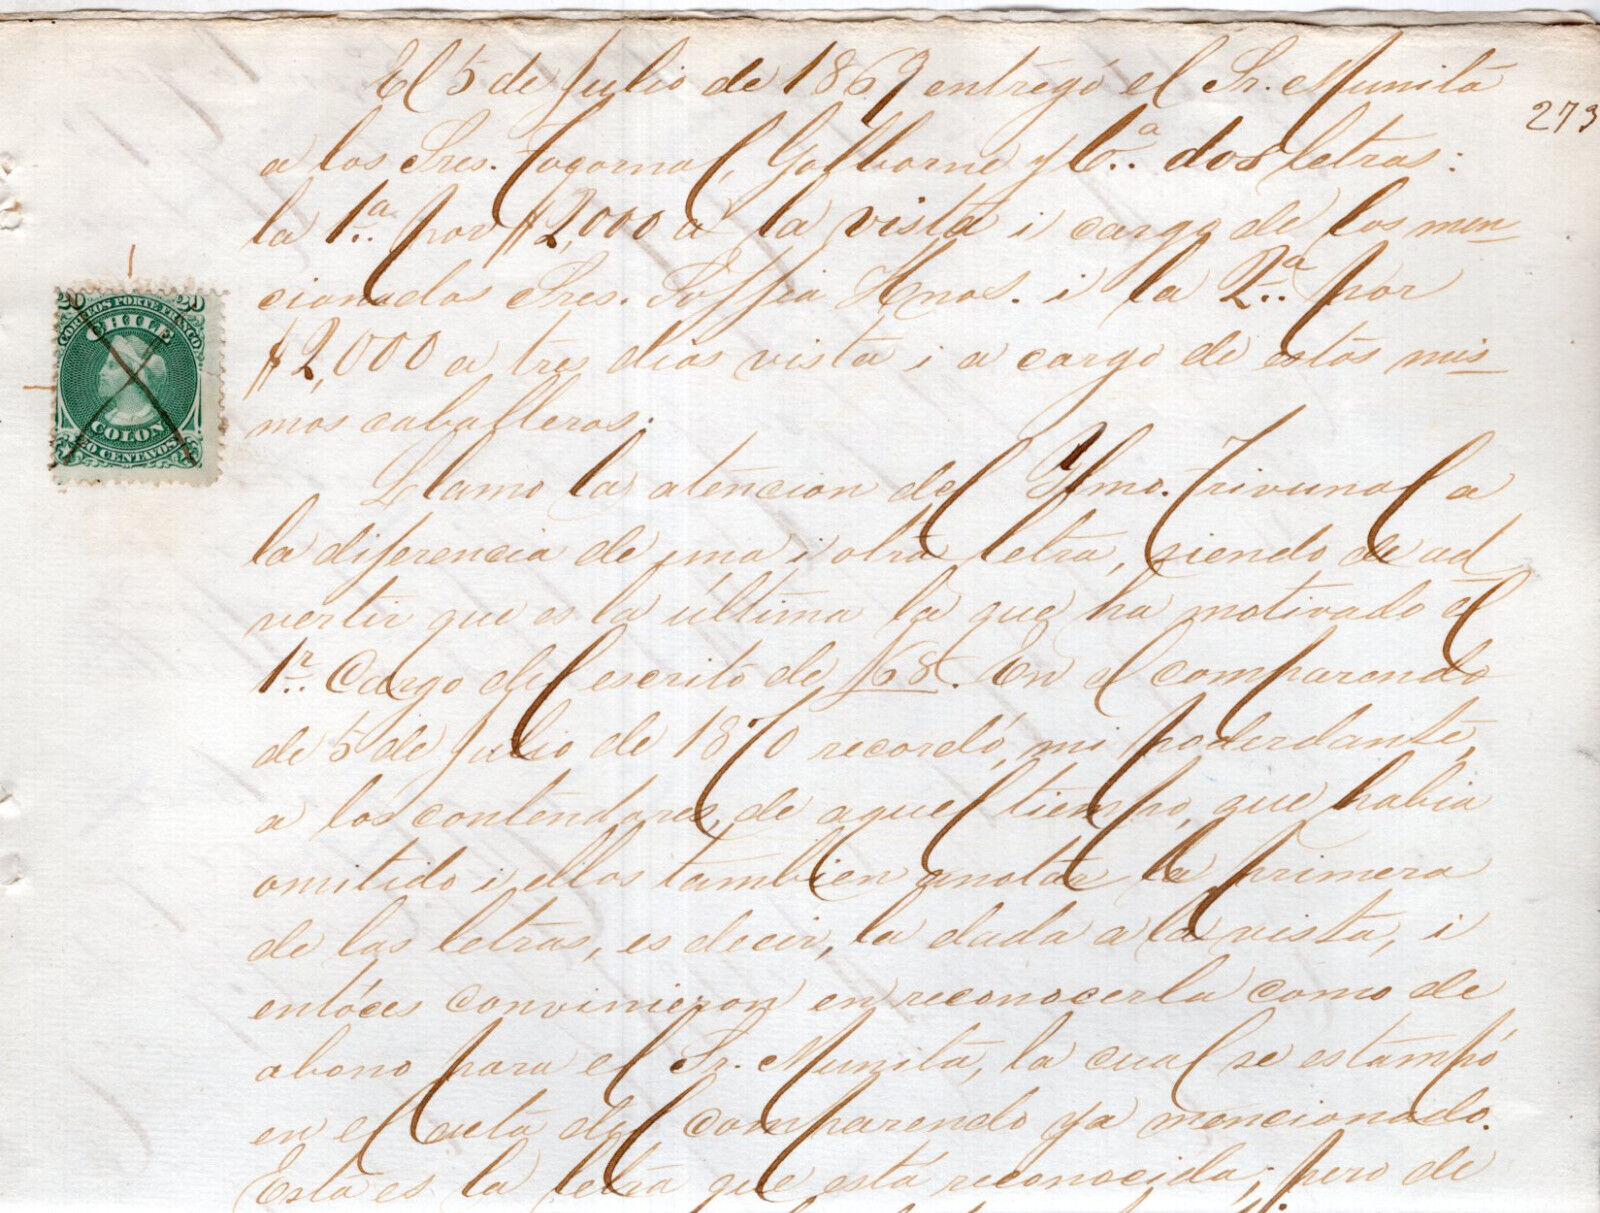 El 5 de Julio de 1869 entregó el Sr. Munita
273
a los Sres. Tocornal, Golborne y Ca. dos letras:
la 1a. por $2,000 a la vista i cargo de los men-
cionados Sres. Soffia Hnos. i la 2a. por
$2,000 a tres dias vista i a cargo de estos mis-
mos caballeros.
Llamo la atencion del Iltmo. Trivunal a
la diferencia de una i otra letra, siendo de ad
vertir que es la última la que ha motivado el
1r. Cargo del escrito de f68. En el comparendo
de 5 de Julio de 1870 recordó, mi poderdante,
a los contendores, de aquel tiempo, que habia
omitido i ellos tambien anotar la primera
de las letras, es decir, la dada a la vista, i
entóces convinieron en reconocerla como de
abono para el Sr. Munita, la cual se estampó
en el acta del comparendo ya mencionado.
Esta es la letra que está reconocida; pero de
20 20
CORREOS PORTE FRANCO
CHILE
COLON
20 CENTAVOS